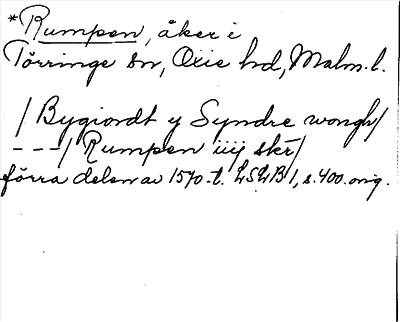 *Rumpen, åker i
Törringe sn, Oxie hd, Malm. l.
/ Bygiordt y Syndre wongh/
---/ Rumpen iiij skr/
förra delen av 1570-t. LSLB 1, s. 400. orig.